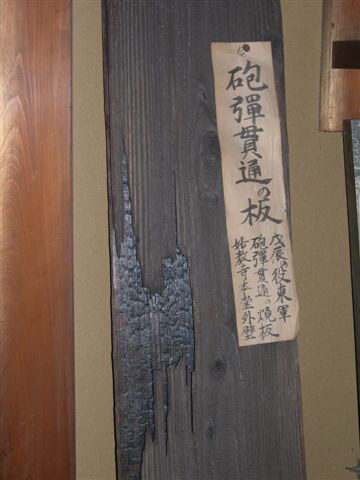 砲彈貫通の板
戊辰の役東軍
砲彈貫通の燒板
妙教寺本堂外壁